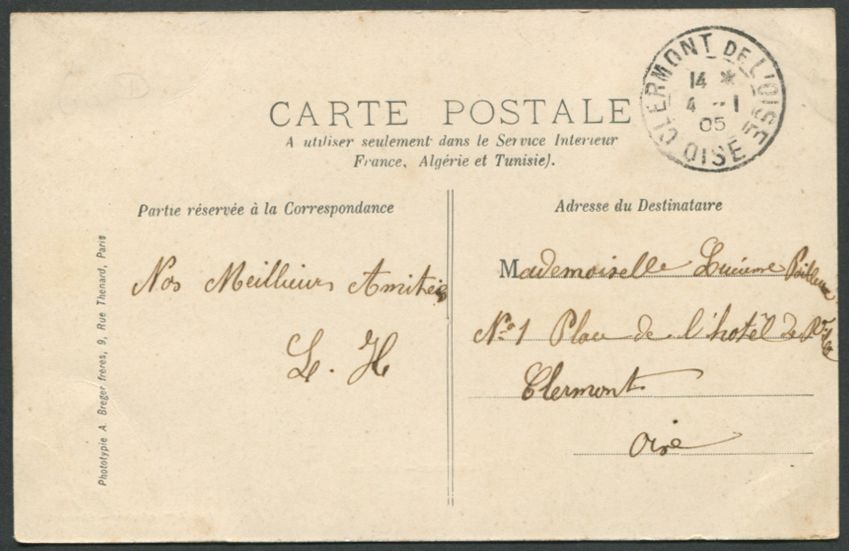 CARTE POSTALE
A utiliser seulement dans le Service Interieur
France, Algérie et Tunisie).
CLERMONT DE L'OISE
14 *
4 - 1
05
OISE
Partie réservée à la Correspondance
Nos Meillieurs Amitiés
L. H
Adresse du Destinataire
Mademoiselle Lucienne
No 1 Place de l'hotel de Ville
Clermont
Oise
Phototypie A. Breger frères, 9, Rue Thenard, Paris